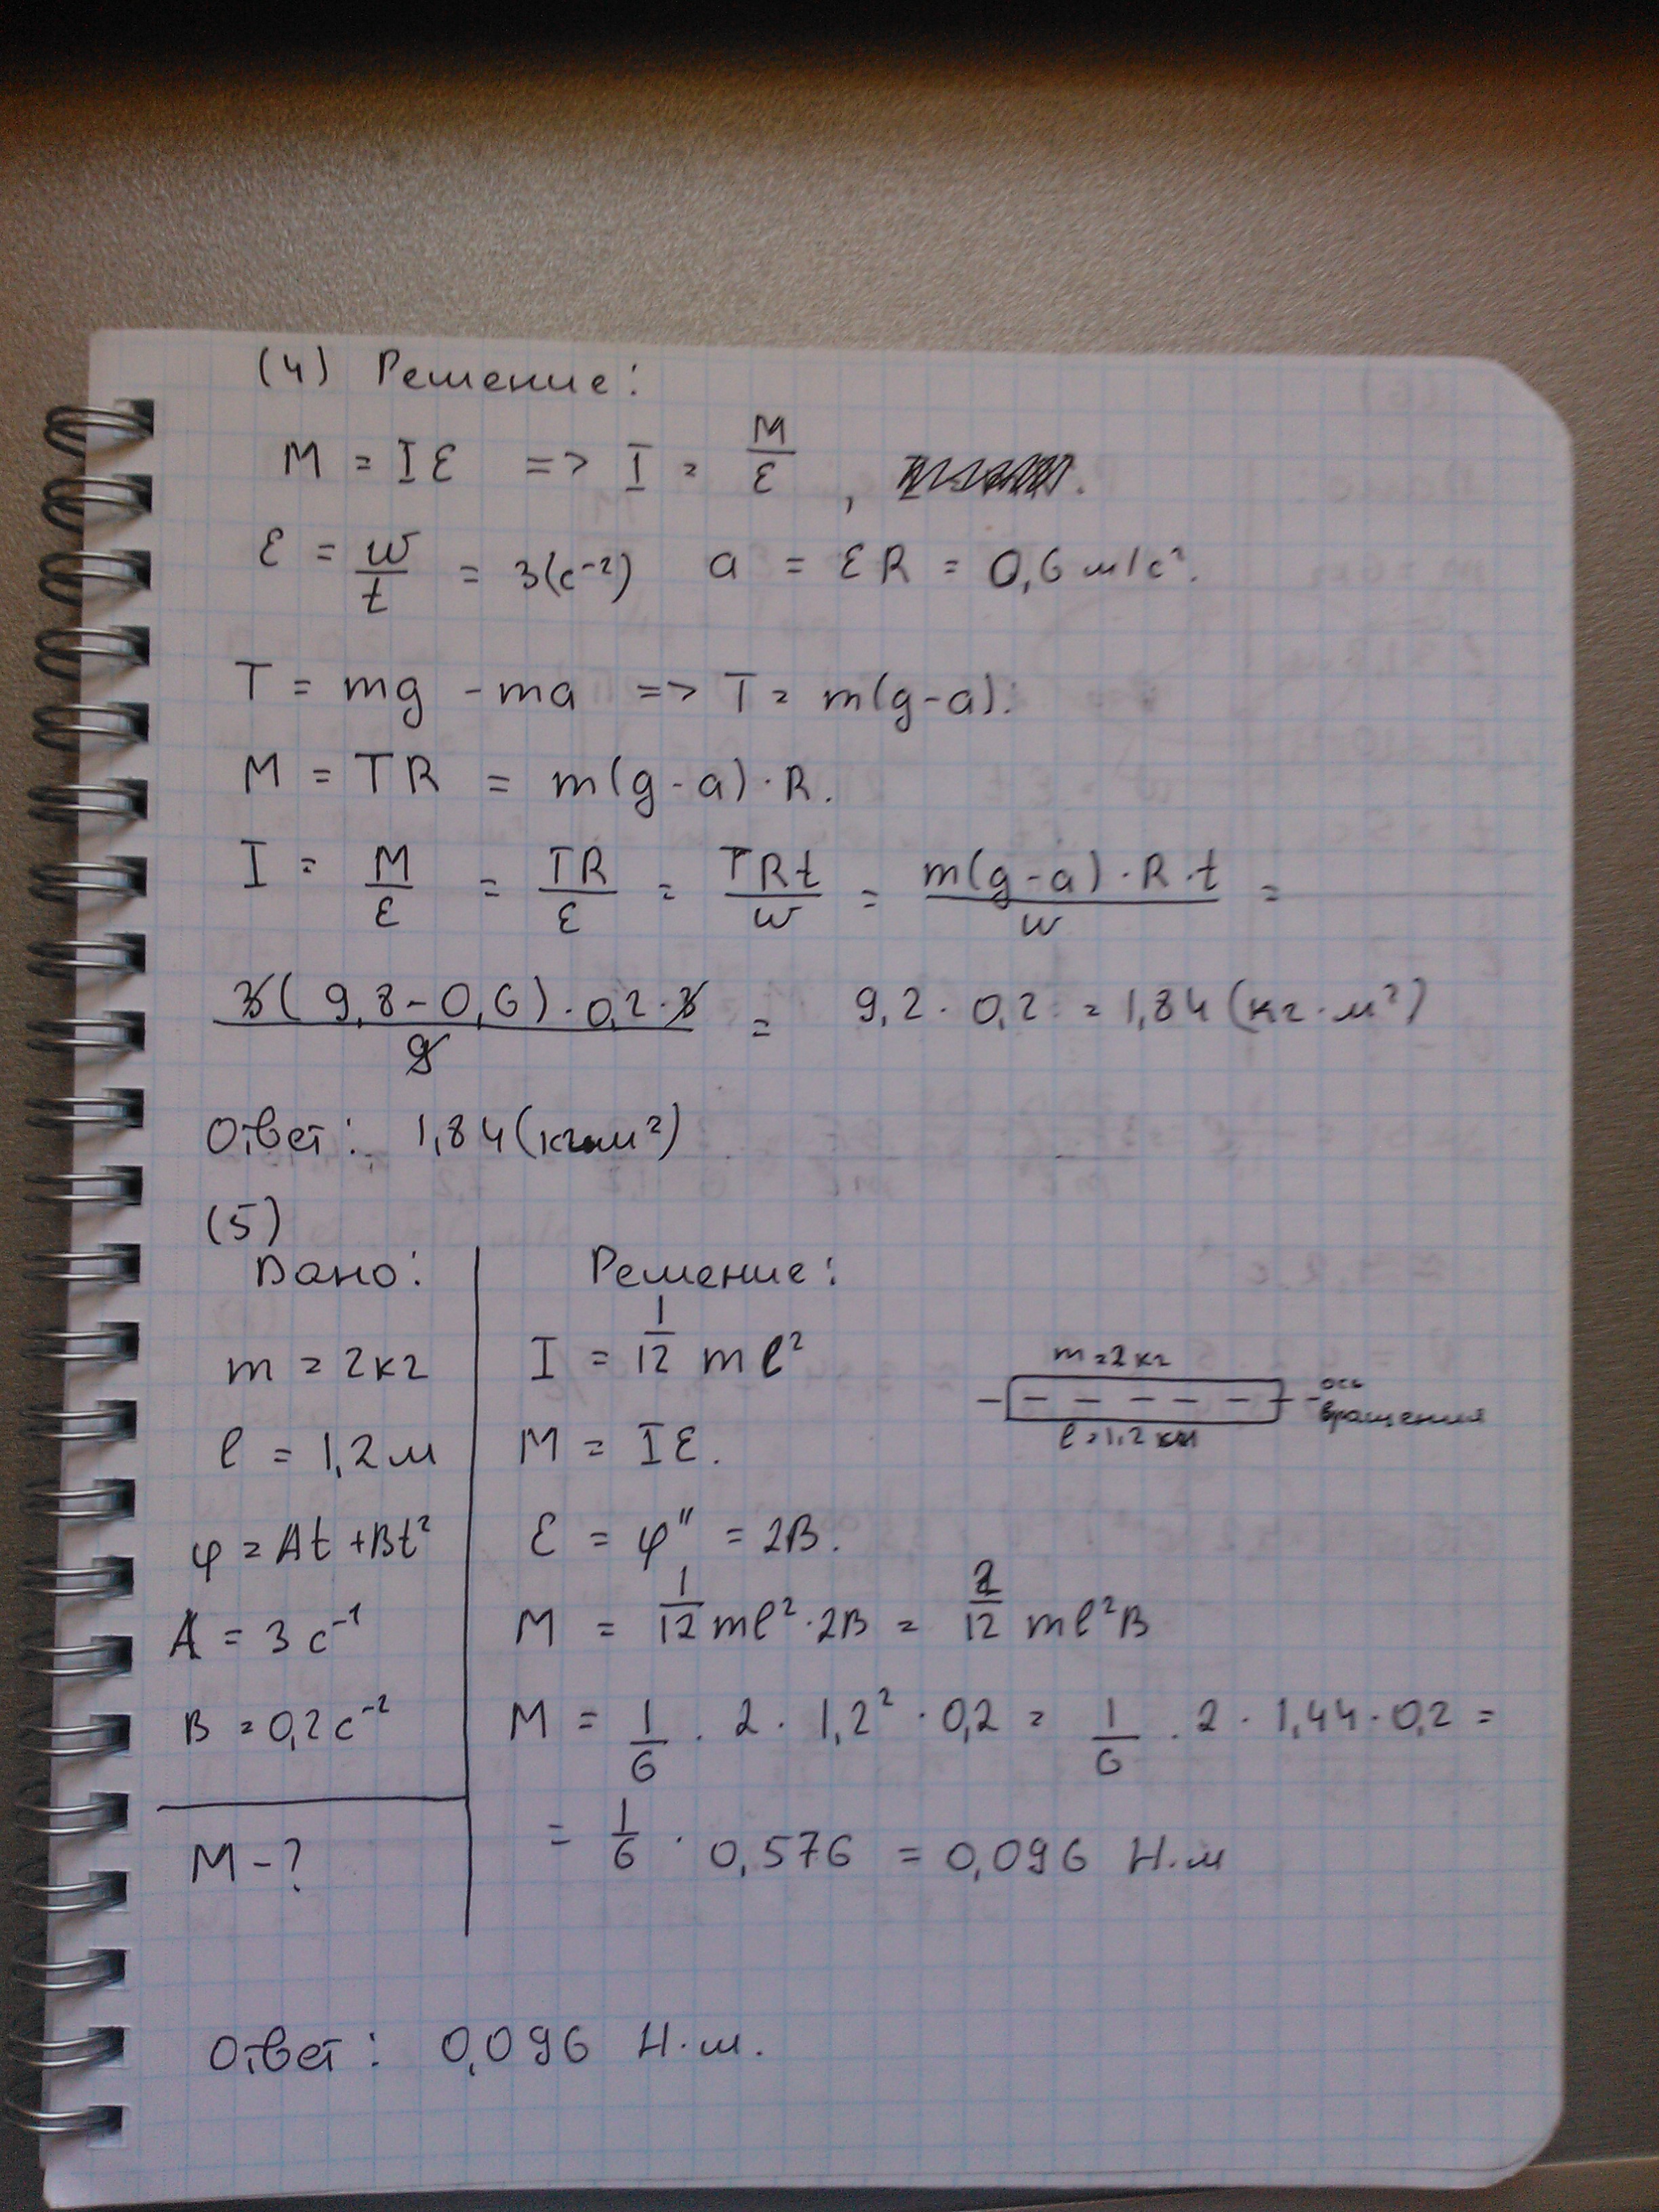 (4) Решение:
M = Iε => I = M/ε ,
ε = w/t = 3(с⁻²) a = εR = 0,6 м/с².
T = mg - ma => T = m(g-a).
M = TR = m(g-a)·R.
I = M/ε = TR/ε = TRt/w = m(g-a)·R·t/w =
3(9,8-0,6)·0,2·3/9 = 9,2·0,2 = 1,84 (кг·м²)
Ответ: 1,84 (кг·м²)
(5)
Дано:
m = 2кг
l = 1,2м
φ = At + Bt²
A = 3 с⁻¹
B = 0,2 с⁻²
M - ?
Решение:
I = 1/12 ml²
M = Iε.
ε = φ'' = 2B.
M = 1/12 ml²·2B = 2/12 ml²B
M = 1/6 · 2 · 1,2² · 0,2 = 1/6 · 2 · 1,44 · 0,2 =
= 1/6 · 0,576 = 0,096 Н·м
m = 2кг
ось
вращения
Ответ: 0,096 Н·м.